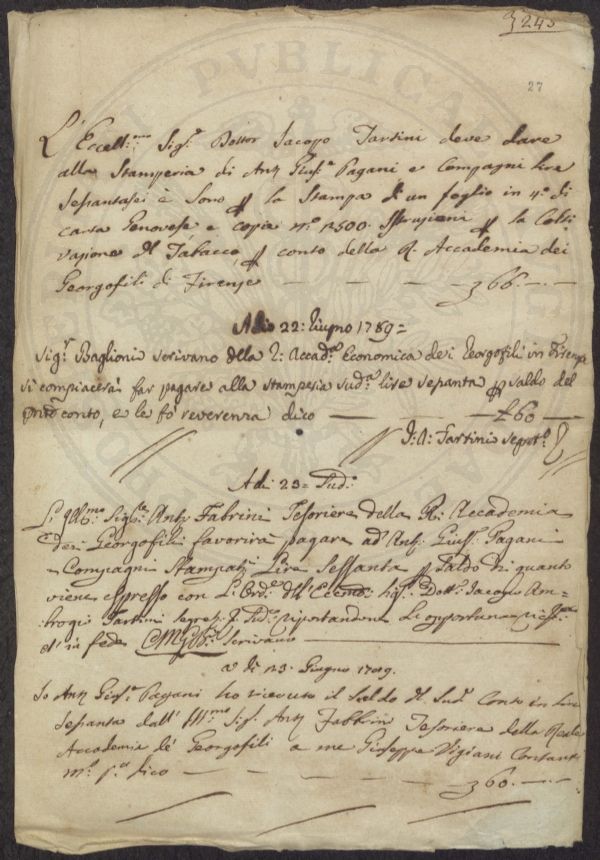 3 243
27
L'Eccell:mo Sig:r Dottor Jacopo Tartini deve dare
alla Stamperia di Ant. Gius.e Pagani e Compagni lire
sessantasei e sono p la Stampa di un foglio in 4.o di
carta Genovese e copie n.o 1500. Istruzioni p la Colti
vazione del Tabacco p conto della R. Accademia dei
Georgofili di Firenze — — — — 366. — . —
Adio 22: Giugno 1789 =
Sig.r Baglioni scrivano della R: Accad.a Economica dei Georgofili in Firenze
si compiacerà far pagare alla stamperia sud.a lire sessanta p saldo del
pnte conto, e le fò reverenza dico — — — £60 —
J: A: Tartini Segret.o
Adi 23 = Sud.o
L'Illmo Sig.re Ant.o Fabrini Tesoriere della R. Accademia
dei Georgofili favorirà pagare ad Ant. Gius.e Pagani
e Compagni Stampat.i Lire Sessanta p Saldo di quanto
viene espresso con L'Ord.e dell' Eccmo Sig.re Dott.e Jacopo Am-
brogio Tartini Segret.o Sud.o riportandone L'opportuna ricev.ta
ed in fede Scrivano
a dì 23. Giugno 1789.
Io Ant. Gius.e Pagani ho ricevuto il Saldo del Sud.o Conto in lire
sessanta dall' Ill.mo Sig. Ant. Fabbrini Tesoriere della Reale
Accademia de' Georgofili a me Giuseppe Vigiani Contanti
m.o p.a dico — — — — — 360. — . —